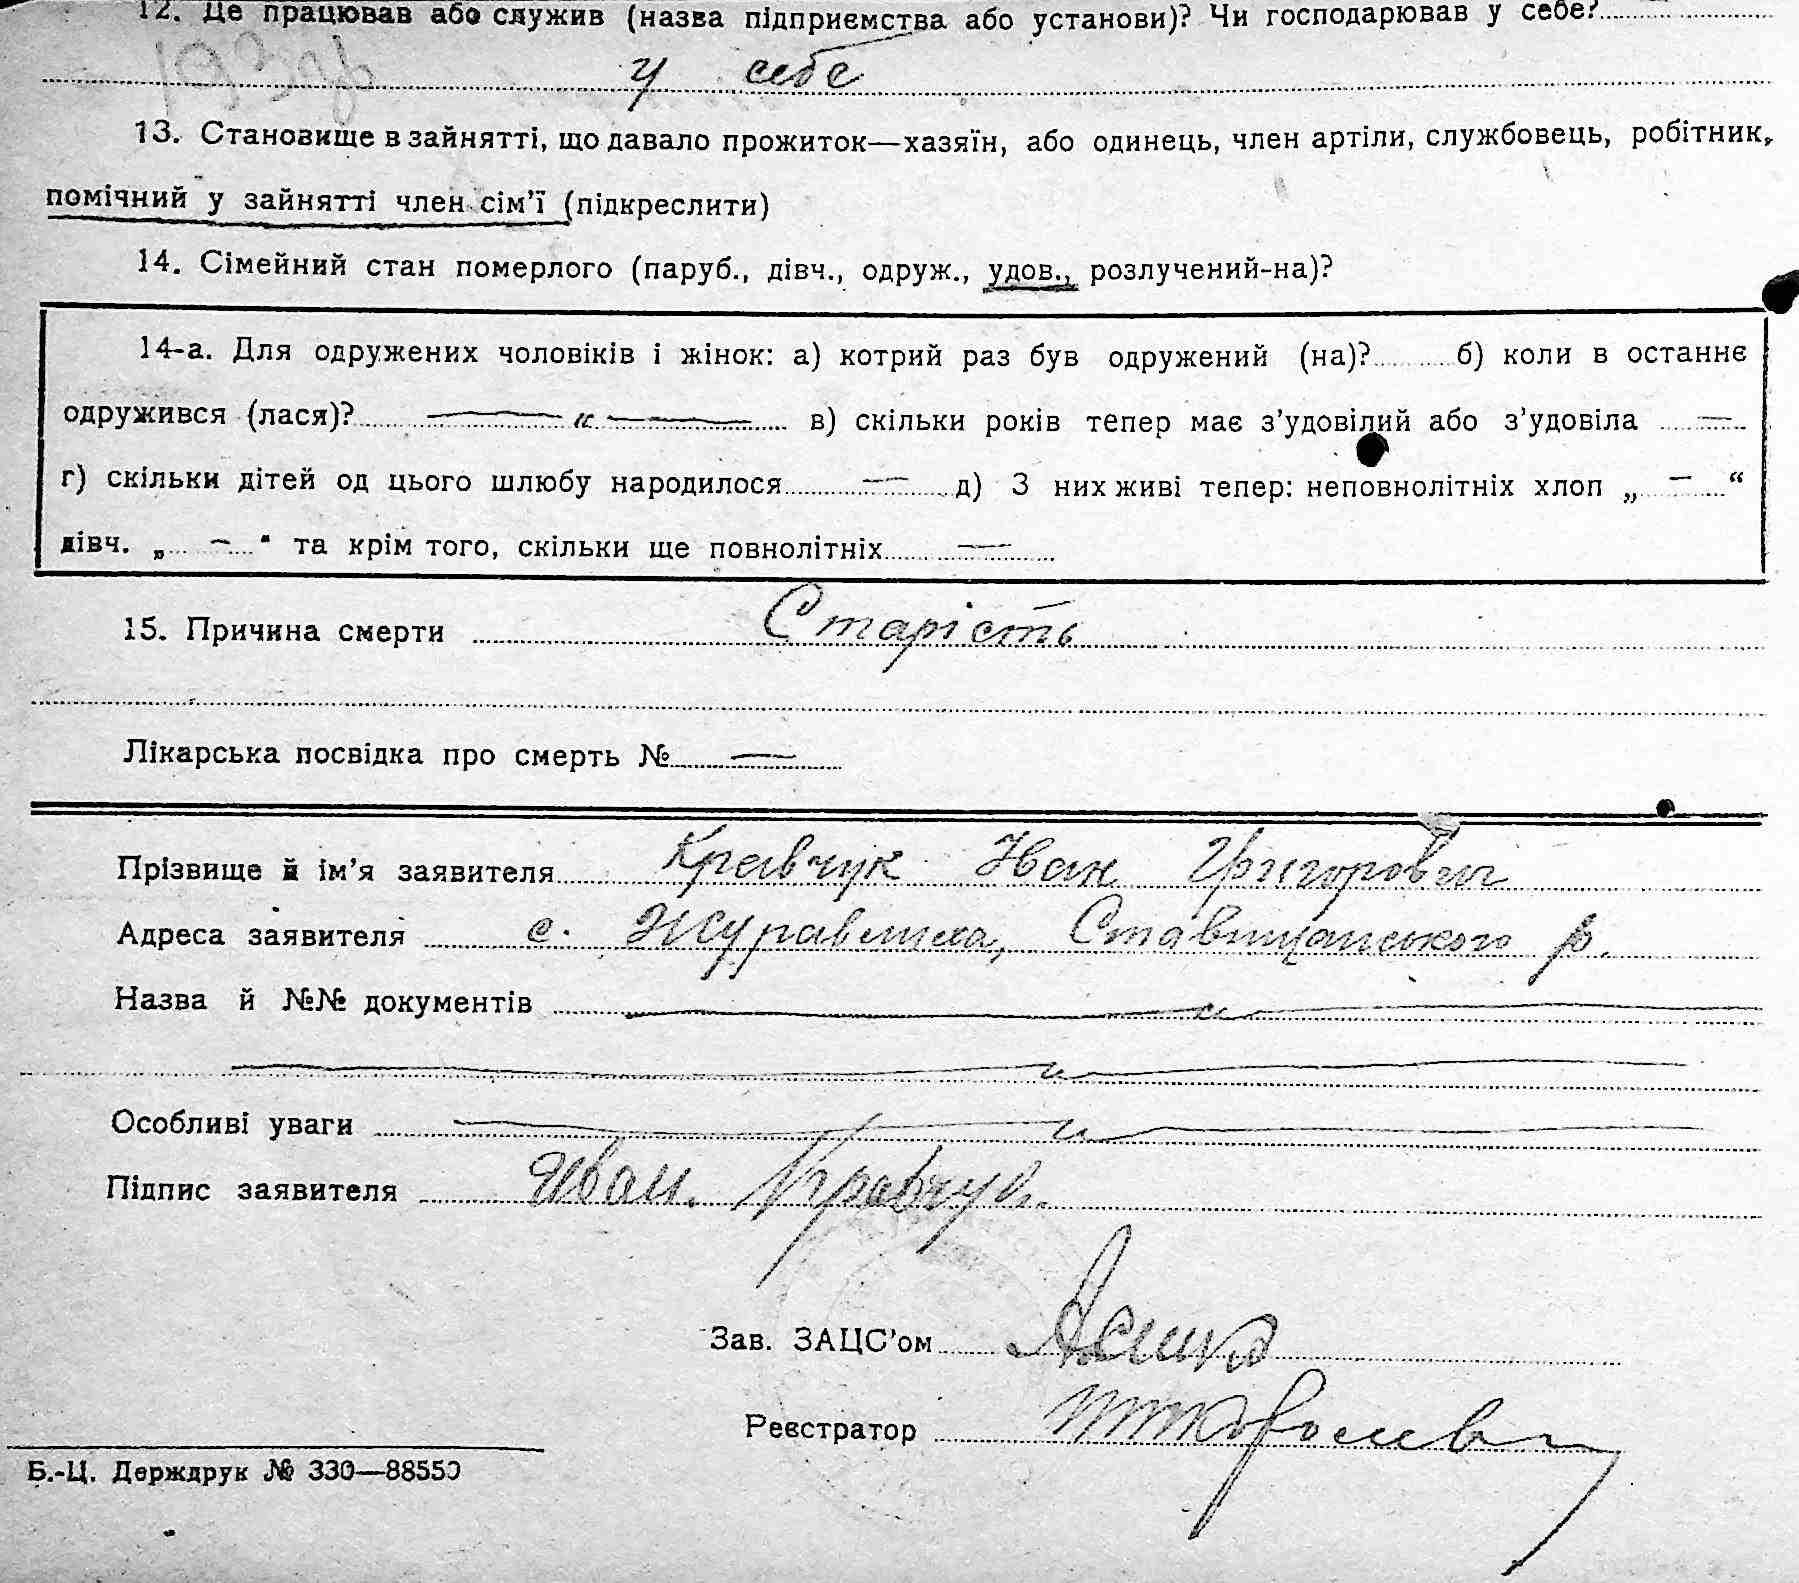 12. Де працював або служив (назва підприємства або установи)? Чи господарював у себе?
у себе
13. Становище в зайнятті, що давало прожиток—хазяїн, або одинець, член артіли, службовець, робітник,
помічний у зайнятті член сім'ї (підкреслити)
14. Сімейний стан померлого (паруб., дівч., одруж., удов., розлучений-на)?
14-а. Для одружених чоловіків і жінок: а) котрий раз був одружений (на)? б) коли в останнє
одружився (лася)? — " — в) скільки років тепер має з'удовілий або з'удовіла —
г) скільки дітей од цього шлюбу народилося — д) З них живі тепер: неповнолітніх хлоп „ — “
дівч. „ — “ та крім того, скільки ще повнолітніх —
15. Причина смерти Старість
Лікарська посвідка про смерть № —
Прізвище й ім'я заявителя Кравчук Іван Григорович
Адреса заявителя с. Журавлиха, Ставищанського р.
Назва й №№ документів — " —
— " —
Особливі уваги — " —
Підпис заявителя Иван. Кравчук.
Зав. ЗАЦС'ом
Реєстратор
Б.-Ц. Держдрук № 330—88550